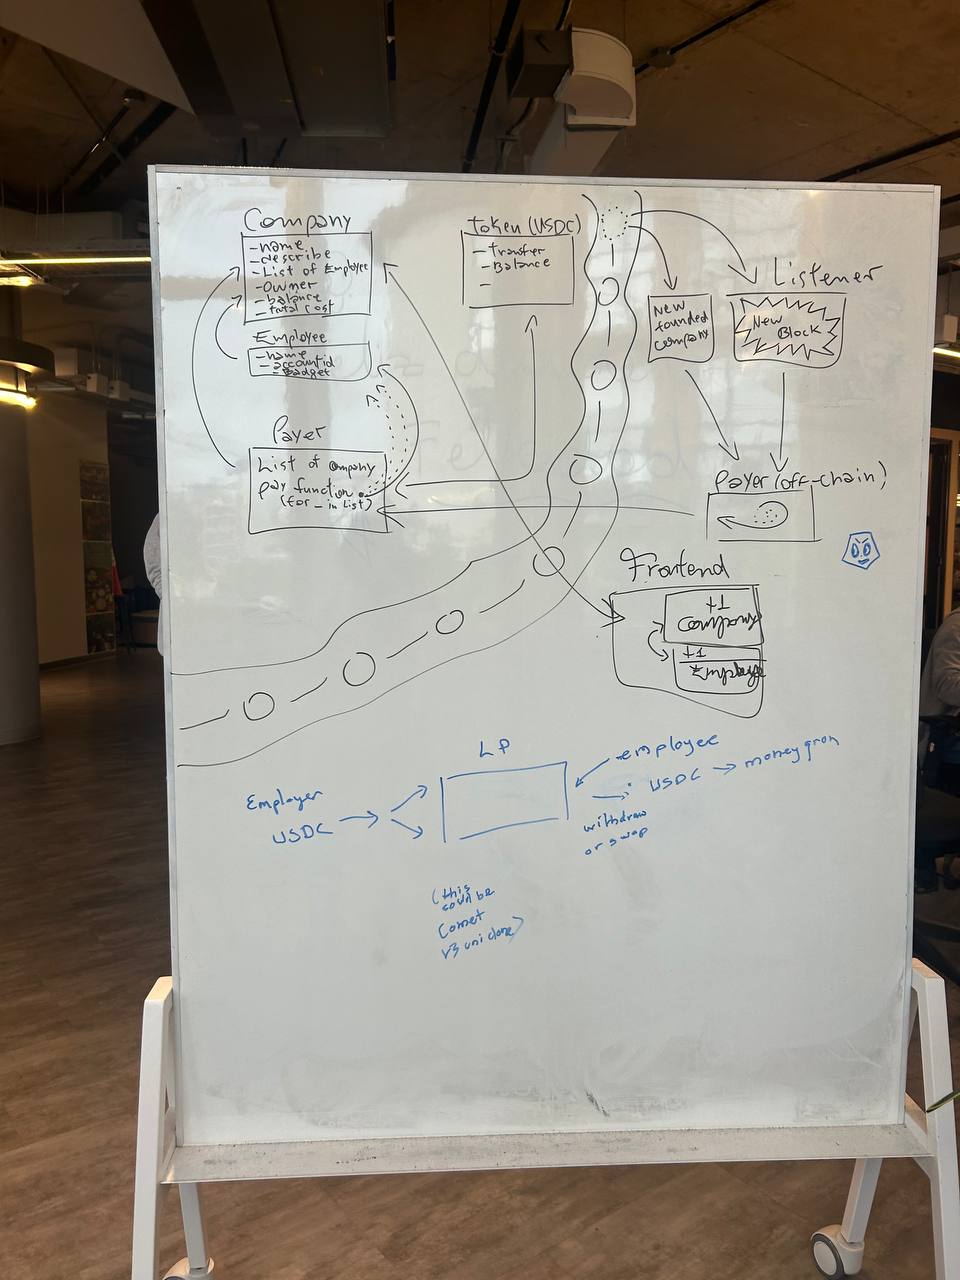 Company
-name
-describe
-List of Employee
-Owner
-balance
-total cost
Employee
-name
-accountid
-badget
Payer
List of company
pay function
(for _ in List)
token (USDC)
-Transfer
-Balance
-
Listener
New
founded
company
New
Block
Payer (off-chain)
Frontend
+1
Company
+1
Employee
LP
Employer
USDC
employee
USDC
moneygram
withdraw
or swap
(this
could be
Comet
v3 uni clone)